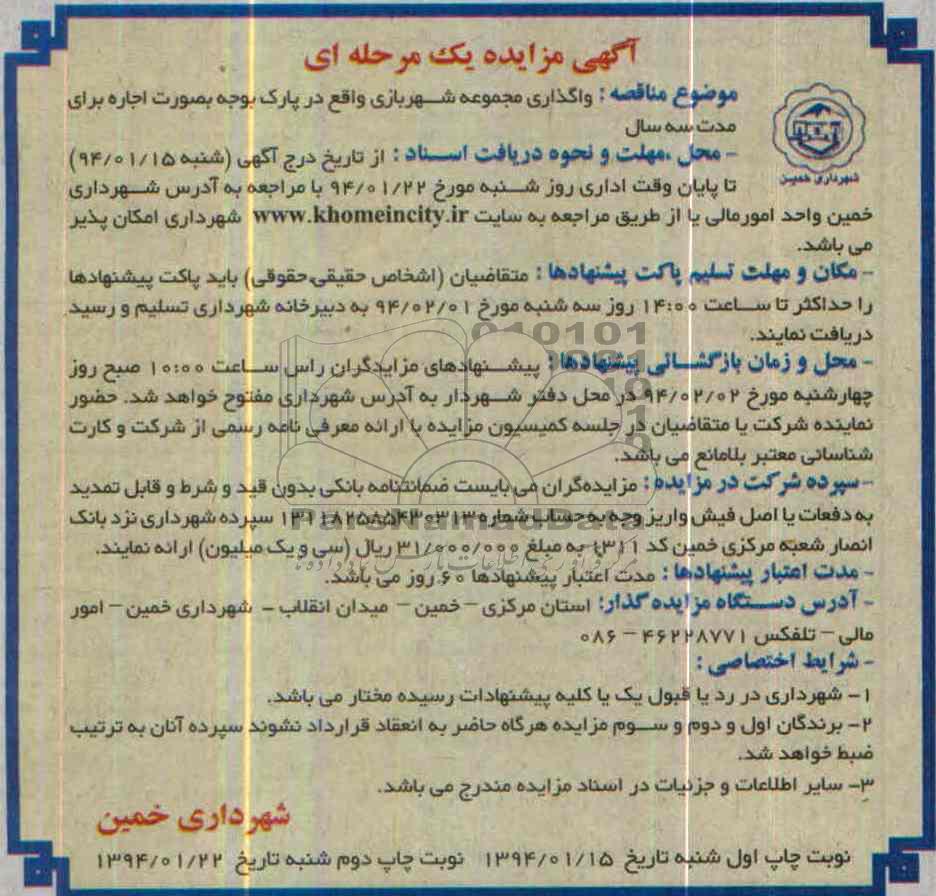 آگهی مزایده یک مرحله ای
موضوع مناقصه : واگذاری مجموعه شهربازی واقع در پارک بوجه بصورت اجاره برای
مدت سه سال
- محل ،مهلت و نحوه دریافت اسناد : از تاریخ درج آگهی (شنبه ۹۴/۰۱/۱۵)
تا پایان وقت اداری روز شنبه مورخ ۹۴/۰۱/۲۲ با مراجعه به آدرس شهرداری
شهرداری خمین
خمین واحد امورمالی یا از طریق مراجعه به سایت www.khomeincity.ir شهرداری امکان پذیر
می باشد.
- مکان و مهلت تسلیم پاکت پیشنهادها : متقاضیان (اشخاص حقیقی،حقوقی) باید پاکت پیشنهادها
را حداکثر تا ساعت ۱۴:۰۰ روز سه شنبه مورخ ۹۴/۰۲/۰۱ به دبیرخانه شهرداری تسلیم و رسید
دریافت نمایند.
- محل و زمان بازگشائی پیشنهادها : پیشنهادهای مزایدگران راس ساعت ۱۰:۰۰ صبح روز
چهارشنبه مورخ ۹۴/۰۲/۰۲ در محل دفتر شهردار به آدرس شهرداری مفتوح خواهد شد. حضور
نماینده شرکت یا متقاضیان در جلسه کمیسیون مزایده با ارائه معرفی نامه رسمی از شرکت و کارت
شناسائی معتبر بلامانع می باشد.
- سپرده شرکت در مزایده : مزایده‌گران می بایست ضمانتنامه بانکی بدون قید و شرط و قابل تمدید
به دفعات یا اصل فیش واریز وجه به حساب شماره سپرده شهرداری نزد بانک
انصار شعبه مرکزی خمین کد ۱۳۱۱ به مبلغ ۳۱/۰۰۰/۰۰۰ ریال (سی و یک میلیون) ارائه نمایند.
- مدت اعتبار پیشنهادها : مدت اعتبار پیشنهادها ۶۰ روز می باشد.
- آدرس دستگاه مزایده گذار: استان مرکزی – خمین – میدان انقلاب – شهرداری خمین – امور
مالی – تلفکس ۴۶۲۲۸۷۷۱ – ۰۸۶
- شرایط اختصاصی :
۱- شهرداری در رد یا قبول یک یا کلیه پیشنهادات رسیده مختار می باشد.
۲- برندگان اول و دوم و سوم مزایده هرگاه حاضر به انعقاد قرارداد نشوند سپرده آنان به ترتیب
ضبط خواهد شد.
۳- سایر اطلاعات و جزئیات در اسناد مزایده مندرج می باشد.
شهرداری خمین
نوبت چاپ اول شنبه تاریخ ۱۳۹۴/۰۱/۱۵ نوبت چاپ دوم شنبه تاریخ ۱۳۹۴/۰۱/۲۲